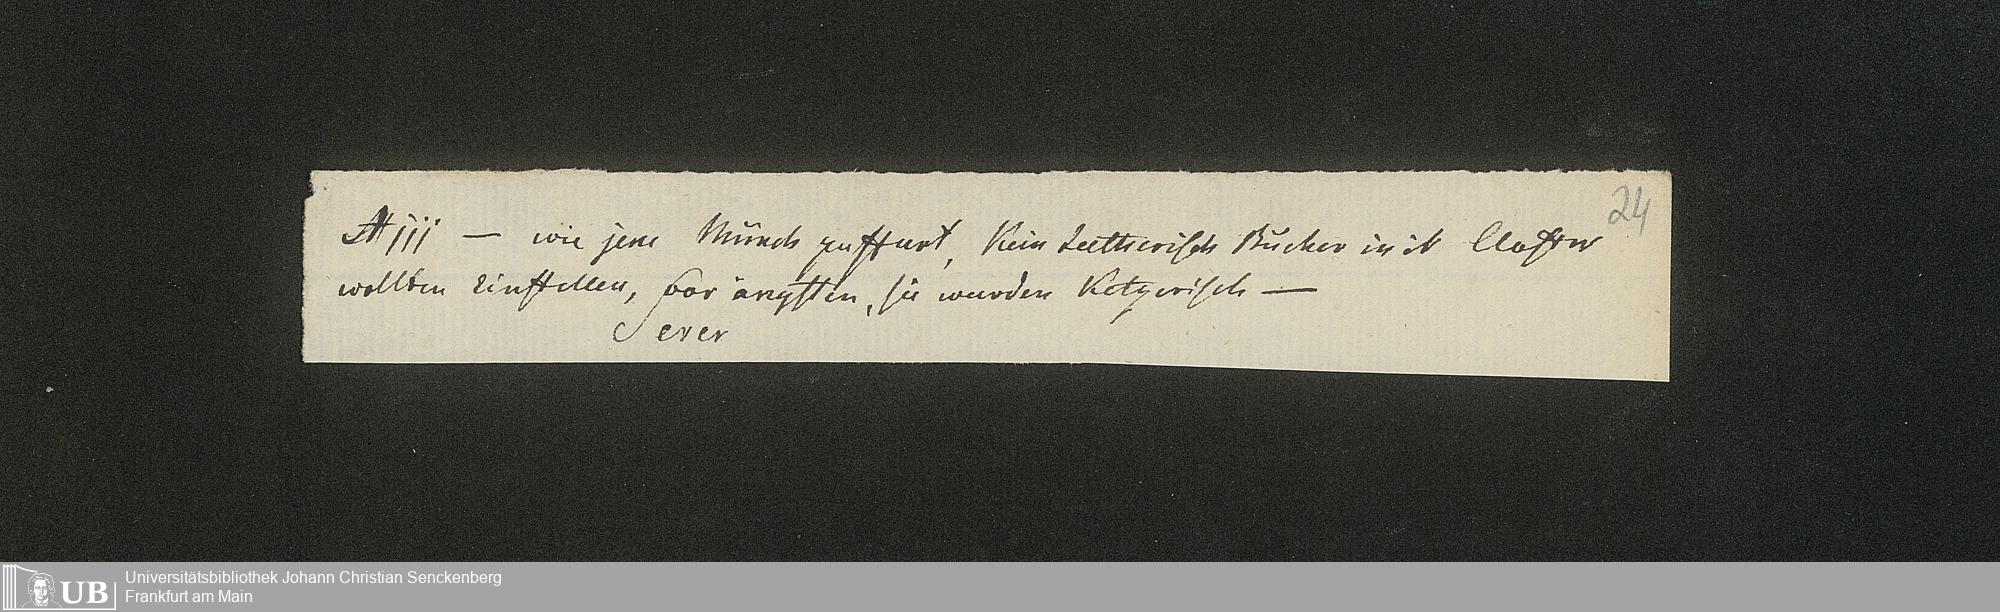 24
A iij — wie jene Münch zu ffurt, Kein Lutherisch Bücher in ir Closter
wollten einstellen, sor ängsten, sie wurden Ketzerisch —
UB
Universitätsbibliothek Johann Christian Senckenberg
Frankfurt am Main